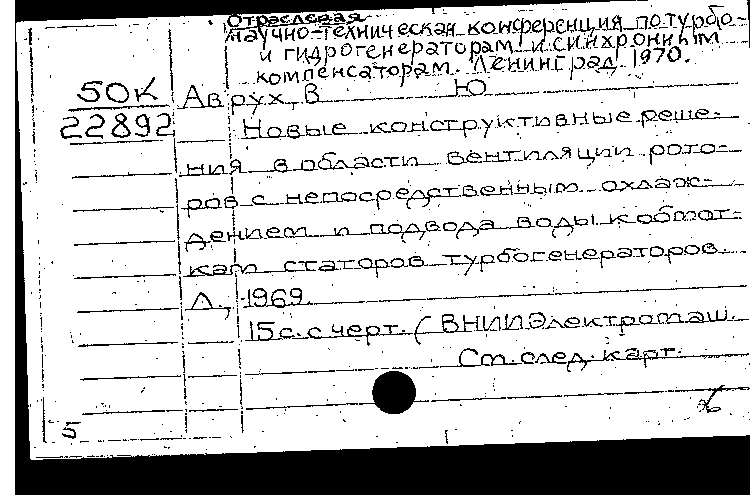 Отраслевая
научно-техническая конференция по турбо-
и гидрогенераторам и синхронным
компенсаторам. Ленинград, 1970.
50К Аврух, В Ю
22892 Новые конструктивные реше-
ния в области вентиляции рото-
ров с непосредственным охлаж-
дением и подвода воды к обмот-
кам статоров турбогенераторов.
Л., 1969.
15 с. с черт. (ВНИИЭлектромаш.
См. след. карт.
5